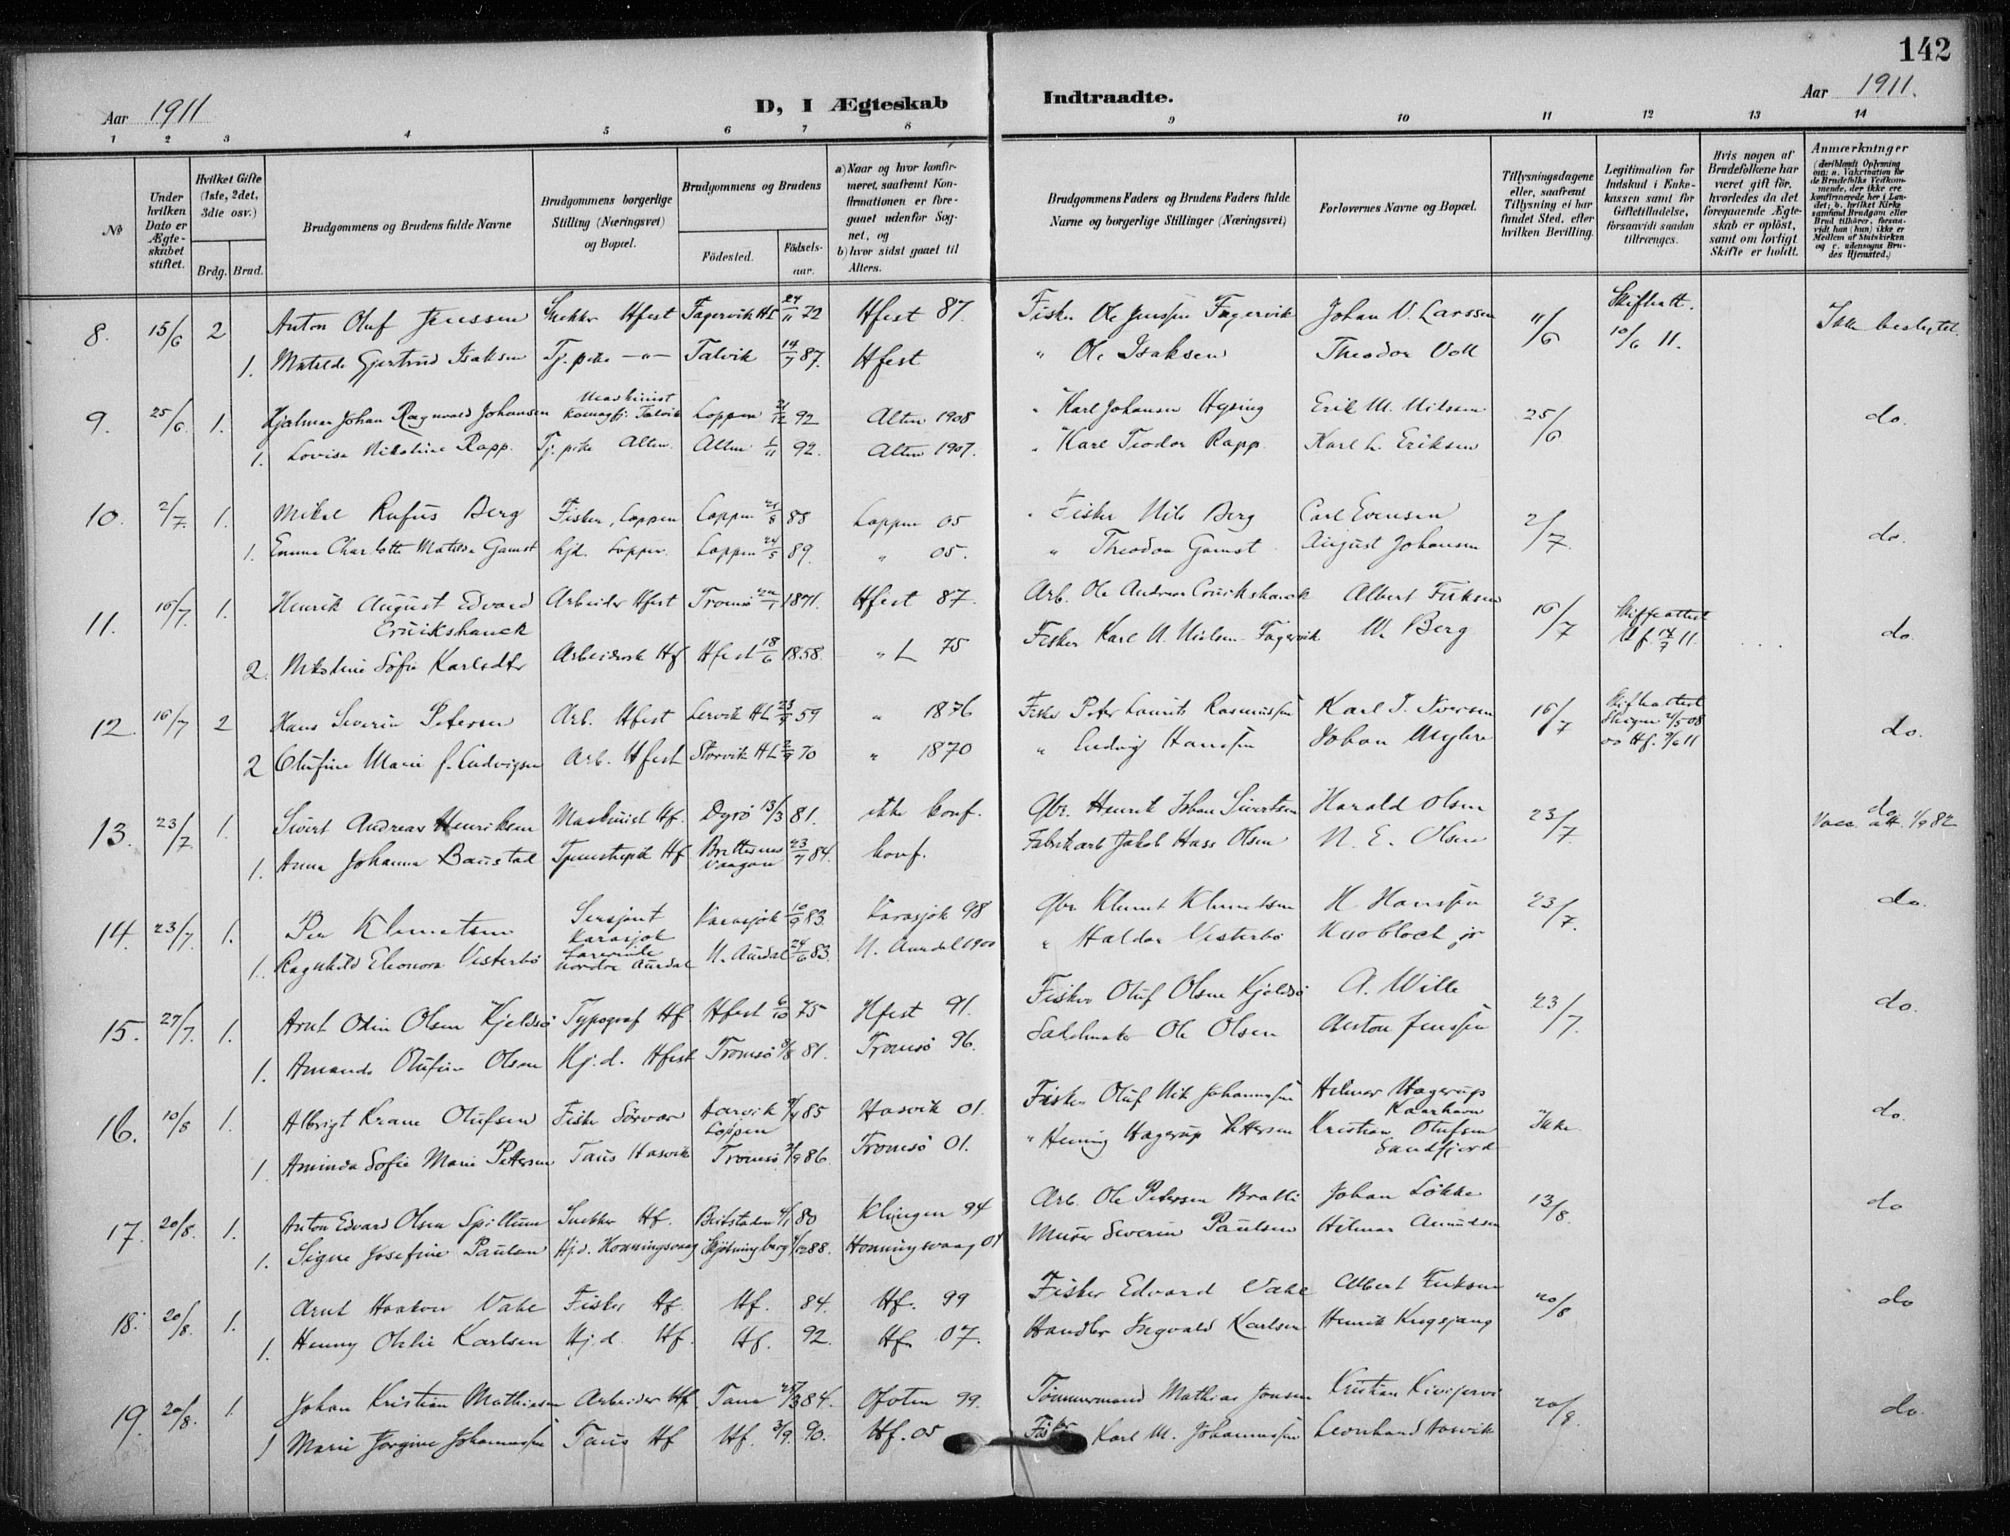 142
Aar 1911
D, I Ægteskab Indtraadte.
Aar 1911.
1 2 3 4 5 6 7 8 9 10 11 12 13 14
No
Under hvilken Dato er Ægteskabet stiftet.
Hvilket Gifte (1ste, 2det, 3die osv.)
Brdg. Brud.
Brudgommens og Brudens fulde Navne
Brudgommens borgerlige Stilling (Næringsvei) og Bopæl.
Brudgommens og Brudens
Födested.
Födselsaar.
a) Naar og hvor konfirmeret, saafremt Konfirmationen er foregaaet udenfor Sognet, og
b) hvor sidst gaaet til Alters.
Brudgommens Faders og Brudens Faders fulde Navne og borgerlige Stillinger (Næringsvei)
Forlovernes Navne og Bopæl.
Tillysningsdagene eller, saafremt Tillysning ei har fundet Sted, efter hvilken Bevilling.
Legitimation for Indskud i Enkekassen samt for Giftetilladelse, forsaavidt saadan tiltrænges.
Hvis nogen af Brudefolkene har været gift för, hvorledes da det foregaaende Ægteskab er oplöst, samt om lovligt Skifte er holdt.
Anmærkninger
(deriblandt Oplysning om: a. Vakcination for de Brudefolks Vedkommende, der ikke ere konfirmerede her i Landet; b. hvilket Kirkesamfund Brudgom eller Brud tilhører, forsaavidt han (hun) ikke er Medlem af Statskirken og c. udensogns Brudes Hjemsted.)
8. 15/6 2 Anton Oluf Jenssen Snekker Hfest Fagervik HL 24/11 72 Hfest 87. Fisker Ole Jenssen Fagervik Johan V. Larssen 11/6 Skifteatt. 10/6 11. Ikke beslegtet.
1. Matilde Gjertrud Isaksen Tj. pike —"— Talvik 14/7 87. Hfest " Ole Isaksen Theodor Voll
9. 25/6 1. Hjalmar Johan Ragnvald Johansen Maskinist Talvik Loppen 21/12 92 Alten 1908 " Karl Johansen Hysing Erik M. Nilsen 25/6 do.
1. Lovisa Nikoline Rapp. Tj. pike Alten. Alten 92. Alten 1907. " Karl Teodor Rapp. Karl L. Eriksen
10. 2/7. 1. Mikal Rufus Berg Fisker, Loppen Loppen 21/8 88 Loppen 05 Fisker Nils Berg Carl Evensen 2/7. do.
1. Emma Charlotte Matilde Gamst Hjd. Loppen. Loppen 24/5 89. " 05. " Theodor Gamst August Johansen
11. 16/7. 1. Henrik August Edvard Cruikshanck Arbeider Hfest Tromsø 1871. Hfest 87. Arb. Ole Andreas Cruikshanck Albert Eriksen 16/7 Skifteattest Hf. 14/7 11. do.
2. Nikoline Sofie Karlsdtr Arbeiderske Hf Hfest 18/6 1858. " L 75 Fisker Karl N. Nielsen Fagervik M. Berg
12. 16/7 2 Hans Severin Petersen Arb. Hfest Lervik HL 59 " 1876 Fisker Peter Laurits Rasmussen Karl J. Iversen 16/7 Skifteattest do.
2 Olufine Marie f. Ludvigsen Arb. Hfest Storvik HL 70 " 1870 " Ludvig Hanssen Johan Myhre
13. 23/7 1. Sivert Andreas Henriksen Maskinist Hf. Dyrø 13/3 81. ikke konf. Gbr. Henrik Johan Sivertsen Harald Olsen 23/7. do. Vacc. att. 82
1. Anna Johanna Baustad Tjenestepik Hf Brettesnes Vaagan 23/7 84. konf. Fabrikarb Jakob Hass Olsen N. E. Olsen
14. 23/7. 1. Per Klemetsen Sersjant Karasjok Karasjok 10/9 83 Karasjok 98 Gbr Klemet Klemetsen H. Hanssen 23/7. do.
1. Ragnhild Eleonora Vesterbø Lærerinde Nordre Aurdal N. Aurdal 24/6 83. N. Aurdal 1900 " Haldor Vesterbø Knobloch jr
15. 27/7. 1. Arnt Odin Olsen Kjeldsø Typograf Hf. Hfest 6/10 75 Hfest 91. Fisker Oluf Olsen Kjeldsø A. Wille 23/7. do.
1. Amanda Olufine Olsen Hj. d. Hfest Tromsø 81. Tromsø 96. Sadelmaker Ole Olsen Anton Jenssen
16. 10/8 1. Albrigt Krane Olufsen Fisker Sörvær Loppen 85 Hasvik 01. Fisker Oluf Nik Johannessen Hilmar Hagerup Ikke do.
1. Aminda Sofie Marie Petersen Taus Hasvik Tromsø 86. Tromsø 01. " Hening Hagerup Pettersen Kristian Olufsen Sandfjord
17. 20/8. 1. Anton Edvard Olsen Spillum Snekker Hf. Beitstaden 80 Klingen 94 Arb. Ole Petersen Bratli Johan Løkke 13/8. do
1. Signe Josefine Paulsen Hj.d. Honningsvaag Skjötningberg 88. Honningsvaag 01 Murer Severin Paulsen Hilmar Amundsen
18. 20/8. 1. Arnt Haakon Vake Fisker Hf. Hf. 84. Hf. 99 Fisker Edvard Vake Albert Eriksen 20/8 do
1. Henny Otelie Karlsen Hj.d. Hf. Hf. 92. Hf. 07. Handler Ingvald Karlsen Henrik
19. 20/8. 1. Johan Kristian Mathiasen Arbeider Hf. Tana 84. Ofoten 99. Tømmermand Mathias Jonsen Kristian Kivijervi 20/8. do.
1 Marie Jorgine Johannessen Taus Hf Hf. 3/9. 90. Hf. 05 Fisker Karl M. Johannessen Leonhard Hasvik